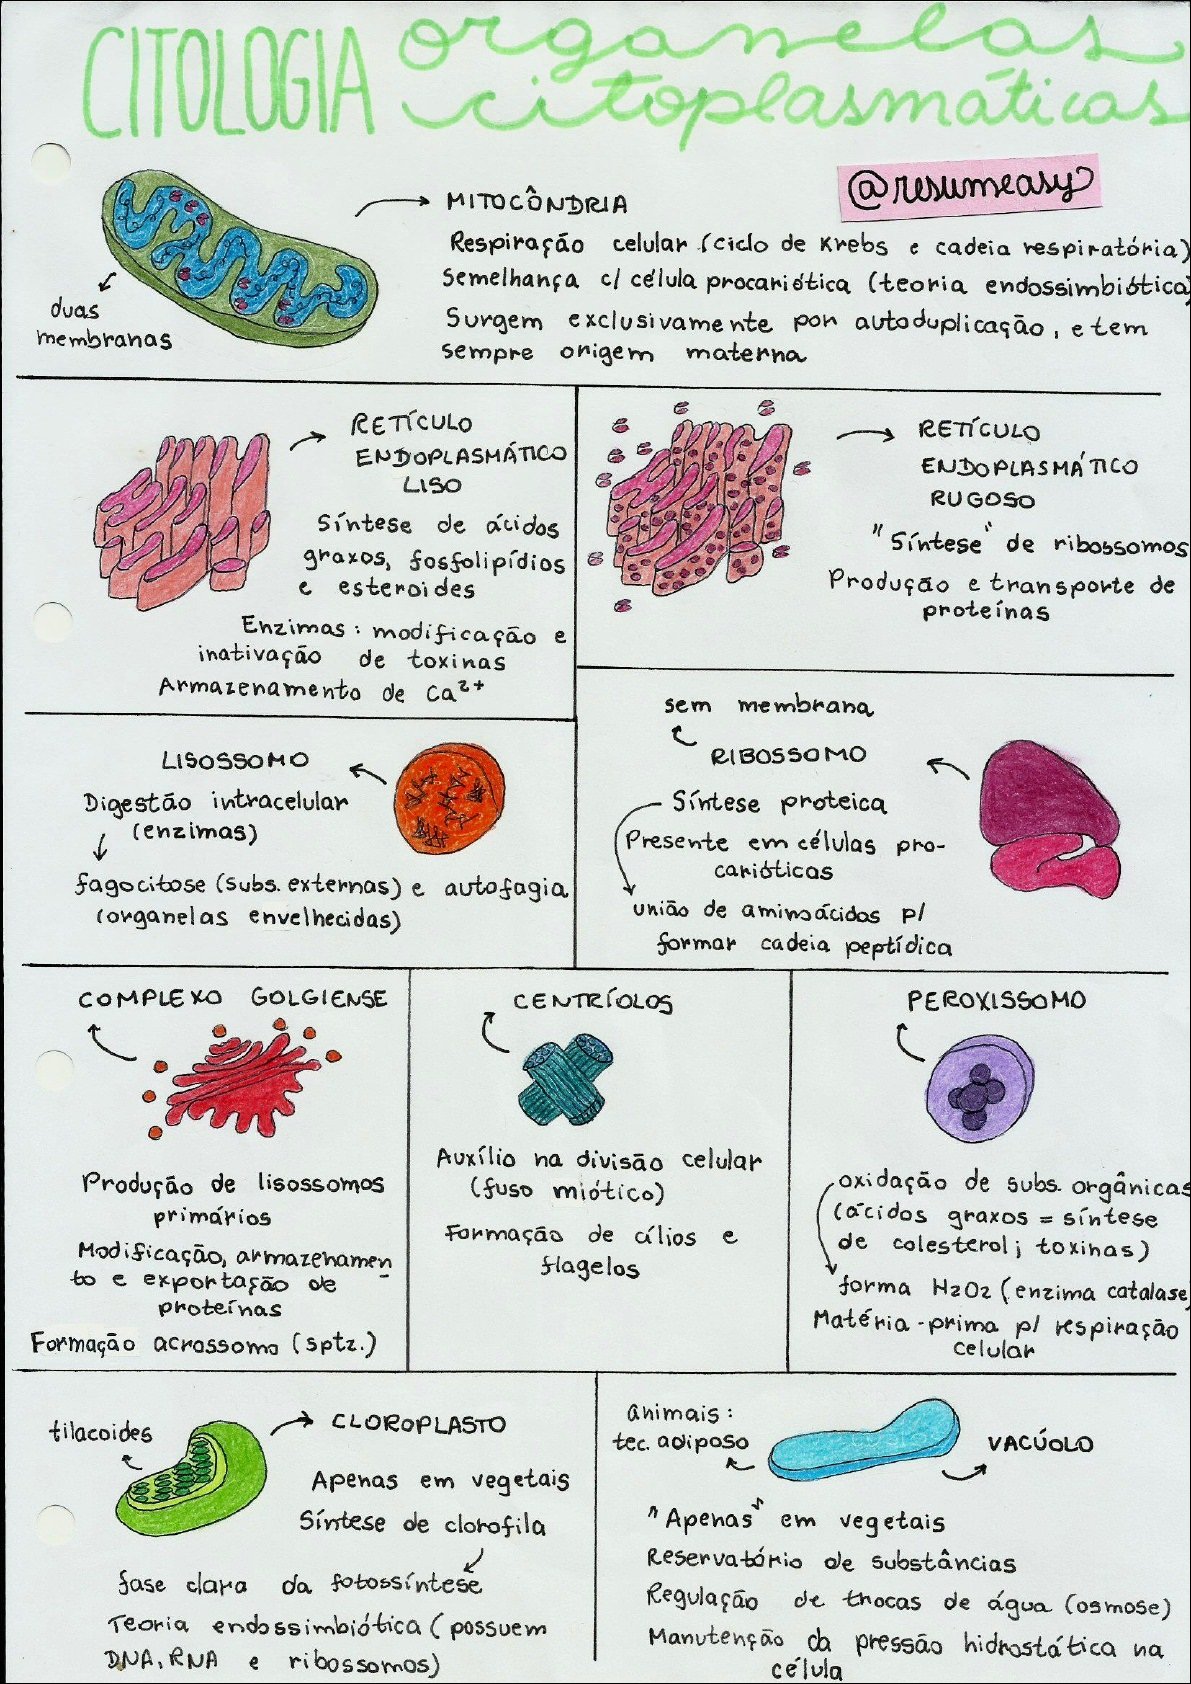 CITOLOGIA organelas
citoplasmáticas
@resumeasy
MITOCÔNDRIA
Respiração celular (ciclo de Krebs e cadeia respiratória)
Semelhança c/ célula procariótica (teoria endossimbiótica)
Surgem exclusivamente por autoduplicação, e tem
sempre origem materna
duas
membranas
RETÍCULO
ENDOPLASMÁTICO
LISO
Síntese de ácidos
graxos, fosfolipídios
e esteroides
Enzimas: modificação e
inativação de toxinas
Armazenamento de Ca²⁺
RETÍCULO
ENDOPLASMÁTICO
RUGOSO
"Síntese" de ribossomos
Produção e transporte de
proteínas
LISOSSOMO
Digestão intracelular
(enzimas)
fagocitose (subs. externas) e autofagia
(organelas envelhecidas)
sem membrana
RIBOSSOMO
Síntese proteica
Presente em células pro-
carióticas
união de aminoácidos p/
formar cadeia peptídica
COMPLEXO GOLGIENSE
Produção de lisossomos
primários
Modificação, armazenamen-
to e exportação de
proteínas
Formação acrossomo (sptz.)
CENTRÍOLOS
Auxílio na divisão celular
(fuso miótico)
Formação de cílios e
flagelos
PEROXISSOMO
oxidação de subs. orgânicas
(ácidos graxos = síntese
de colesterol; toxinas)
forma H2O2 (enzima catalase)
Matéria-prima p/ respiração
celular
tilacoides
CLOROPLASTO
Apenas em vegetais
Síntese de clorofila
fase clara da fotossíntese
Teoria endossimbiótica (possuem
DNA, RNA e ribossomos)
animais:
tec. adiposo
VACÚOLO
"Apenas" em vegetais
Reservatório de substâncias
Regulação de trocas de água (osmose)
Manutenção da pressão hidrostática na
célula